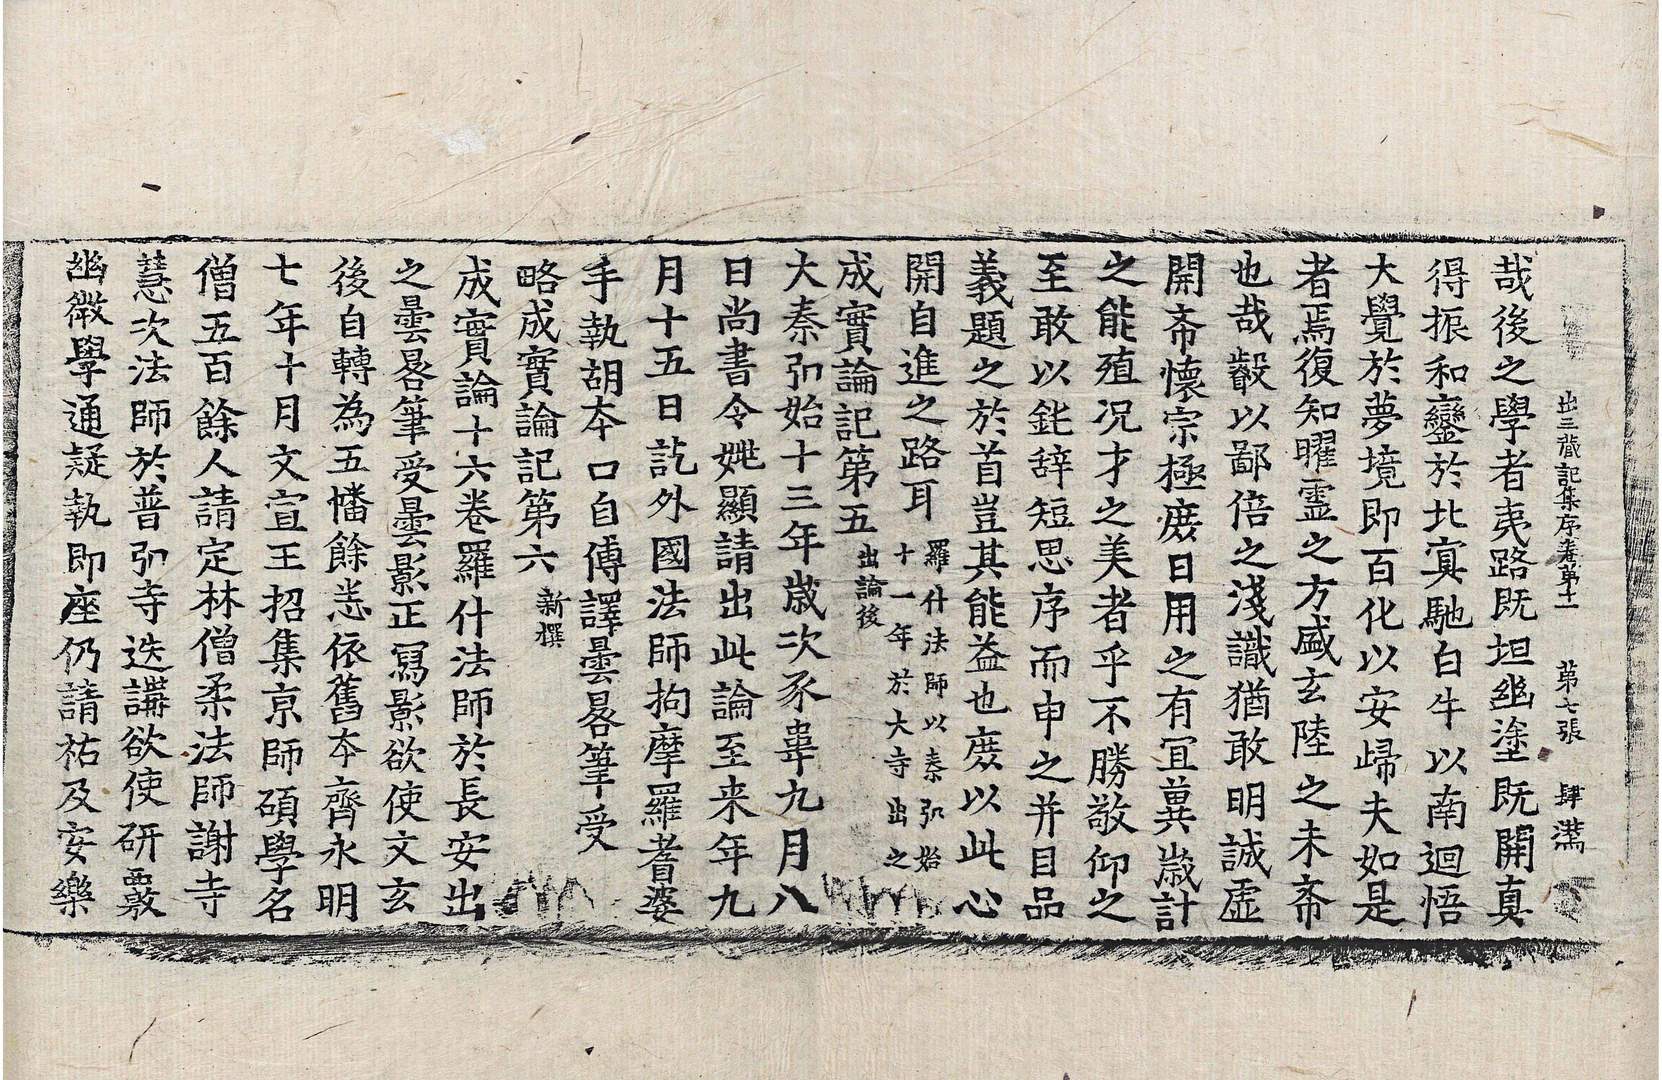 出三藏記集序卷第十一　第七張　肆　滿
哉後之學者夷路既坦幽塗既開真
得振和鑾於北㝠馳白牛以南迴悟
大覺於夢境即百化以安歸夫如是
者焉復知曜靈之方盛玄陸之未斋
也哉㲉以鄙倍之淺識猶敢明誠虛
開斋懷宗極庻日用之有冝兾嵗計
之能殖况才之美者乎不勝敬仰之
至敢以鈍辝短思序而申之并目品
義題之於首豈其能益也庻以此心
開自進之路耳羅什法師以秦弘始
十一年於大寺出之
成實論記第五出論後
大秦弘始十三年嵗次豕韋九月八
日尚書令姚顯請出此論至来年九
月十五日訖外國法師拘摩羅耆婆
手執胡夲口自傅譯曇晷筆受
略成實論記第六新撰
成實論十六卷羅什法師於長安出
之曇晷筆受曇影正寫影欲使文玄
後自轉為五幡餘悉依舊夲齊永明
七年十月文宣王招集京師碩學名
僧五百餘人請定林僧柔法師謝寺
慧次法師於普弘寺迭講欲使研覈
幽微學通疑執即座仍請祐及安樂